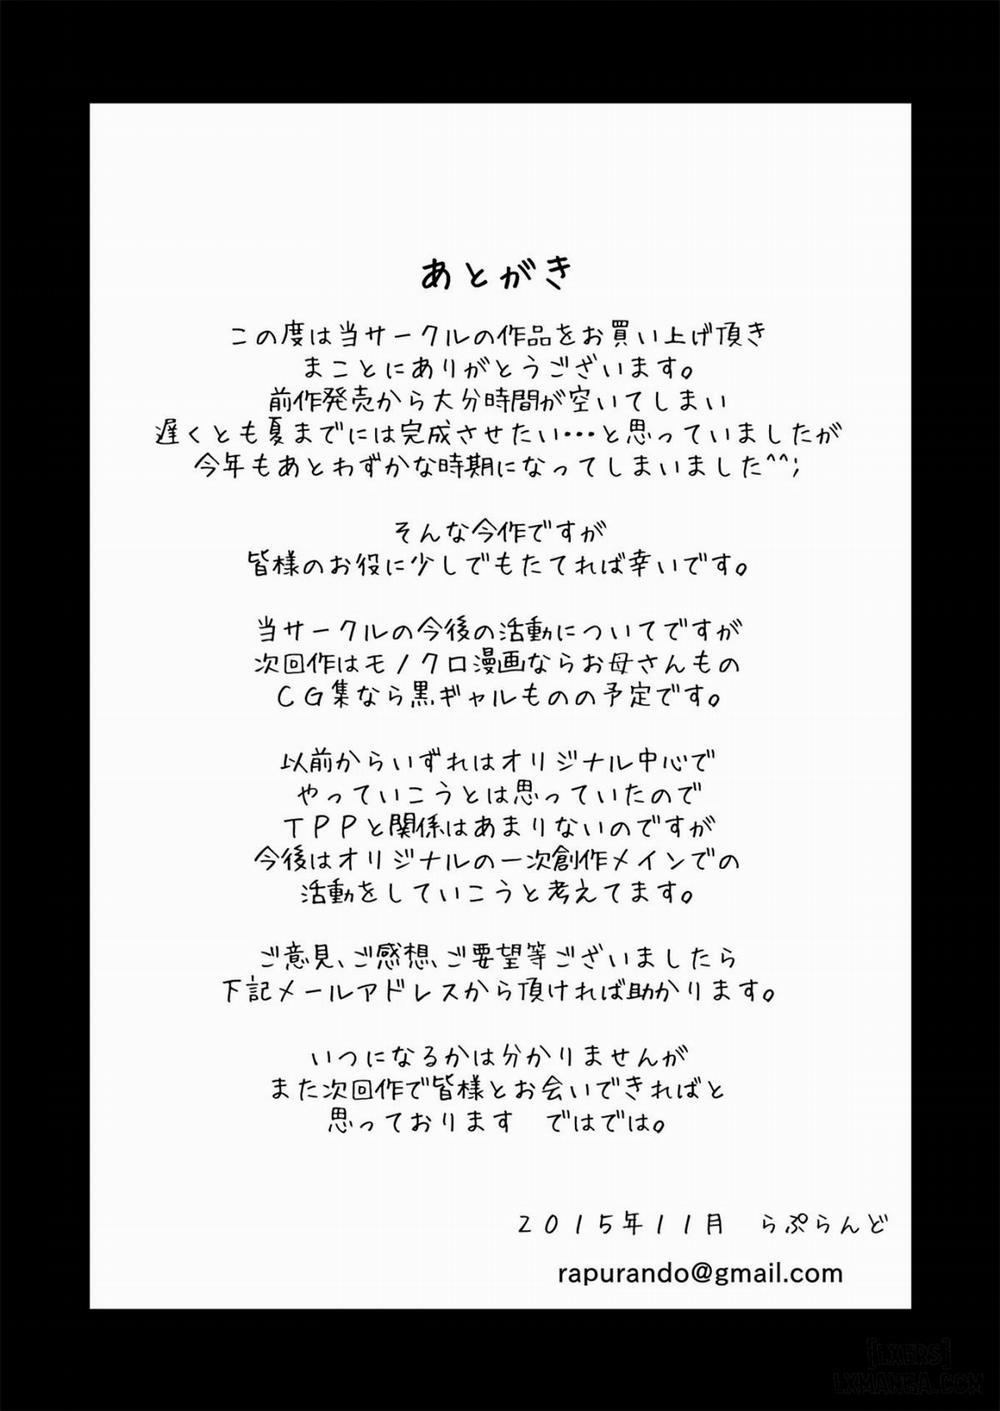 あとがき
この度は当サークルの作品をお買い上げ頂き
まことにありがとうございます。
前作発売から大分時間が空いてしまい
遅くとも夏までには完成させたい・・・と思っていましたが
今年もあとわずかな時期になってしまいました^^;
そんな今作ですが
皆様のお役に少しでもたてれば幸いです。
当サークルの今後の活動についてですが
次回作はモノクロ漫画ならお母さんもの
ＣＧ集なら黒ギャルものの予定です。
以前からいずれはオリジナル中心で
やっていこうとは思っていたので
ＴＰＰと関係はあまりないのですが
今後はオリジナルの一次創作メインでの
活動をしていこうと考えてます。
ご意見、ご感想、ご要望等ございましたら
下記メールアドレスから頂ければ助かります。
いつになるかは分かりませんが
また次回作で皆様とお会いできればと
思っております　ではでは。
２０１５年１１月　らぷらんど
rapurando@gmail.com
[LXERS]
LXMANGA.COM